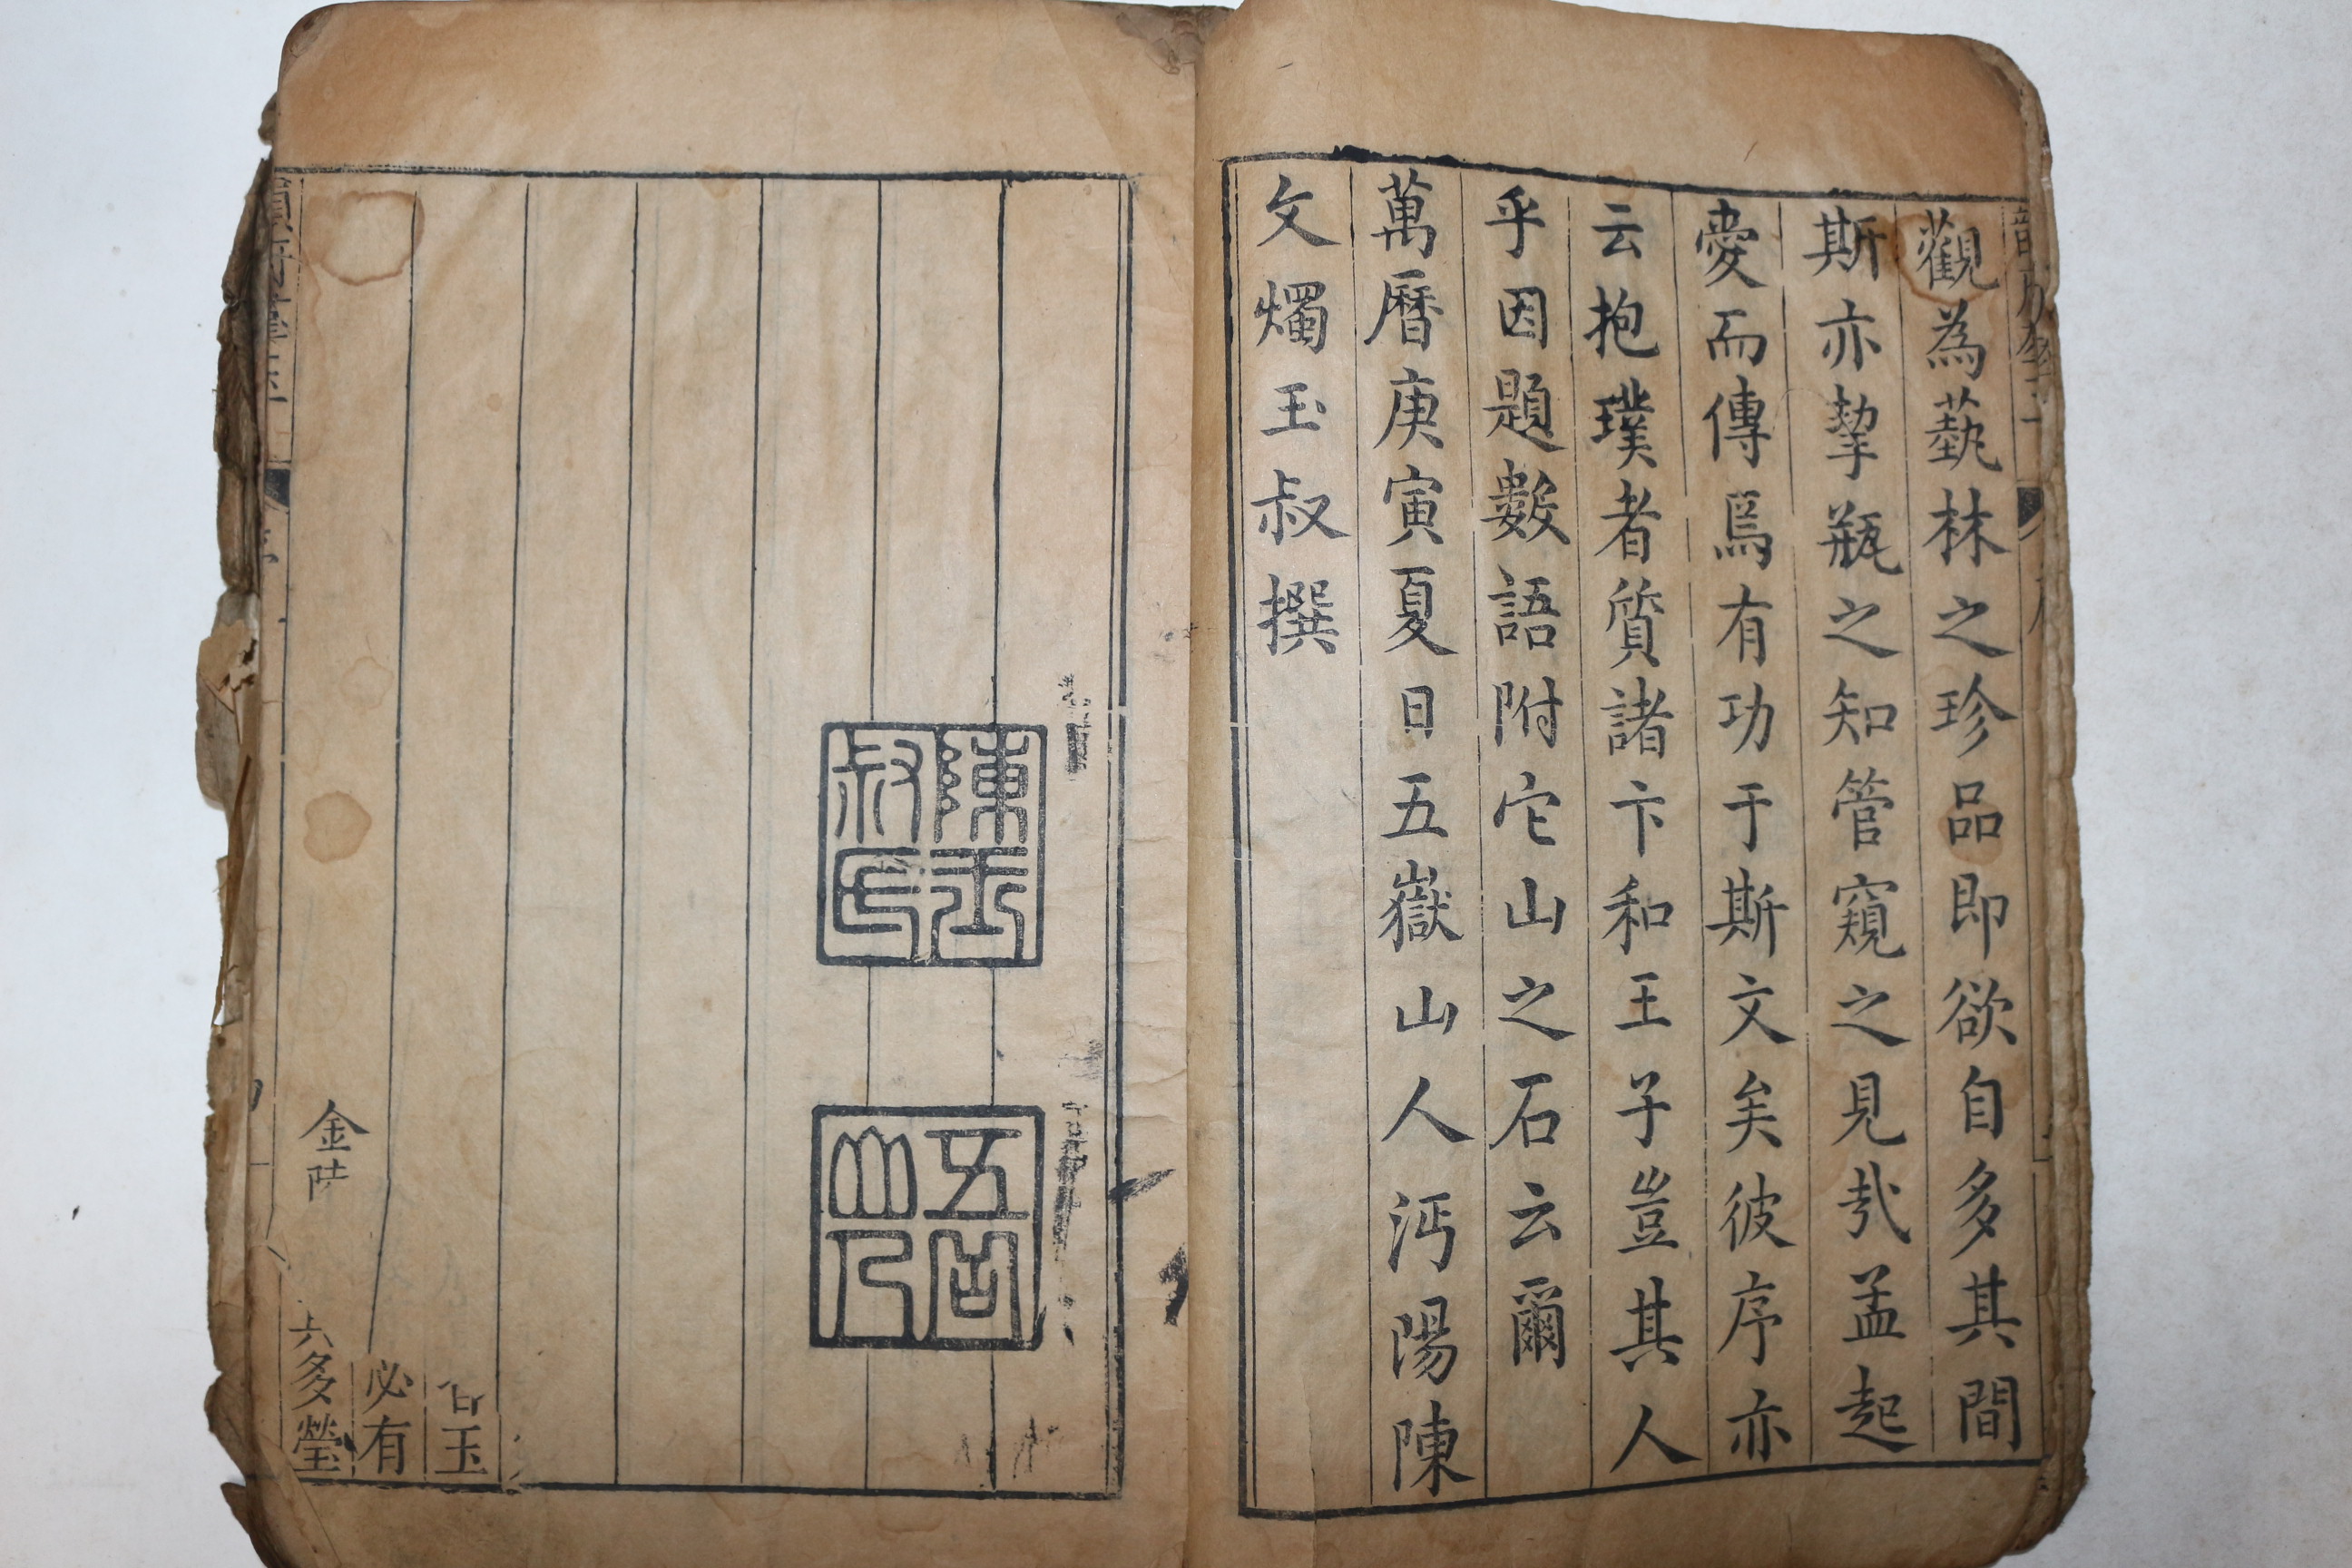 觀為藝林之珍品即欲自多其間
斯亦挈瓶之知管窺之見哉孟起
愛而傳焉有功于斯文矣彼序亦
云抱璞者質諸卞和王子豈其人
乎因題數語附它山之石云爾
萬曆庚寅夏日五嶽山人沔陽陳
文燭玉叔撰
陳玉叔氏
五岳山人
玉
必有
多瑩
金陵